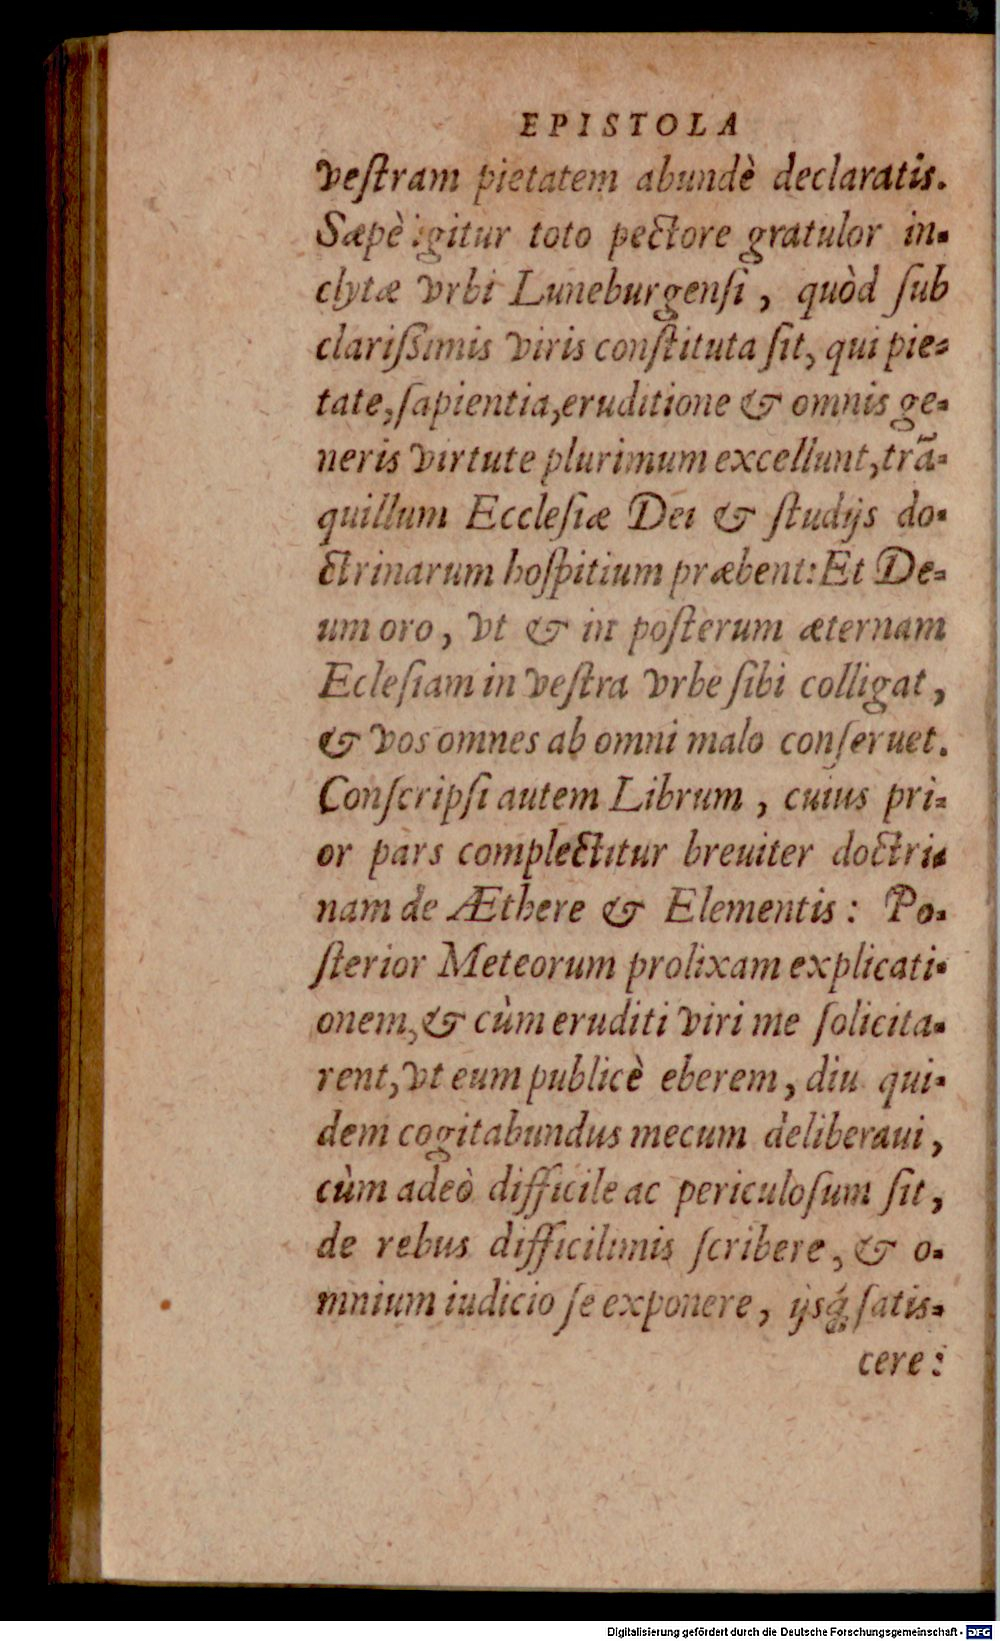 EPISTOLA
veſtram pietatem abundè declaratis.
Sæpè igitur toto pectore gratulor in-
clytæ vrbi Luneburgenſi, quòd ſub
clariſſimis viris conſtituta ſit, qui pie-
tate, ſapientia, eruditione & omnis ge-
neris virtute plurimum excellunt, trã-
quillum Eccleſiæ Dei & ſtudijs do-
ctrinarum hoſpitium præbent: Et De-
um oro, vt & in poſterum æternam
Ecleſiam in veſtra vrbe ſibi colligat,
& vos omnes ab omni malo conſeruet.
Conſcripſi autem Librum, cuius pri-
or pars complectitur breuiter doctri-
nam de Æthere & Elementis: Po-
ſterior Meteorum prolixam explicati-
onem, & cùm eruditi viri me ſolicita-
rent, vt eum publicè eberem, diu qui-
dem cogitabundus mecum deliberaui,
cùm adeò difficile ac periculoſum ſit,
de rebus difficilimis ſcribere, & o-
mnium iudicio ſe exponere, ijsq́; ſatis-
cere:
Digitalisierung gefördert durch die Deutsche Forschungsgemeinschaft - DFG